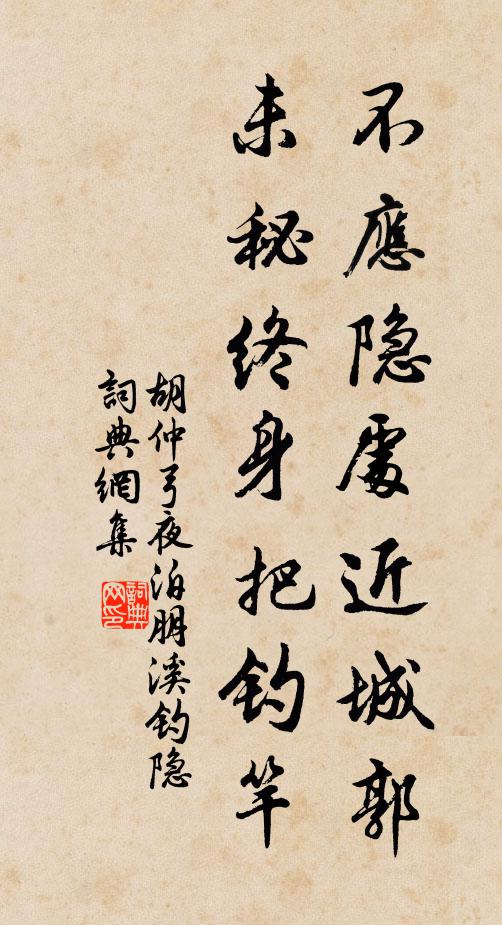 不應隐處近城郭
未秘終身把钓竿
胡仲弓夜泊朋溪钓隐
詞典網集
詞典网印